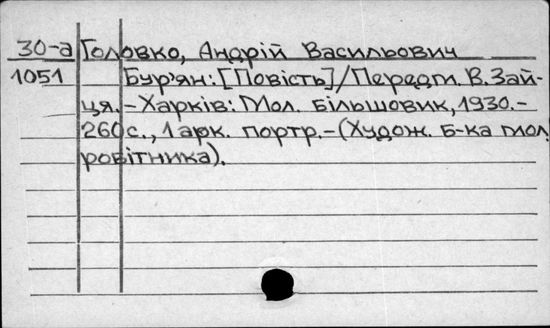 30-а Головко, Андрій Васильович
1051 Бур'ян: [Повість]/Передм. В. Зай-
ця. – Харків: Мол. більшовик, 1930. –
260 с., 1 арк. портр. – (Худож. б-ка мол.
робітника).